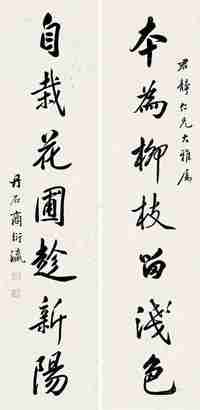 君静仁兄大雅属
本為柳枝留淺色
自栽花圃趁新陽
丹石商衍瀛